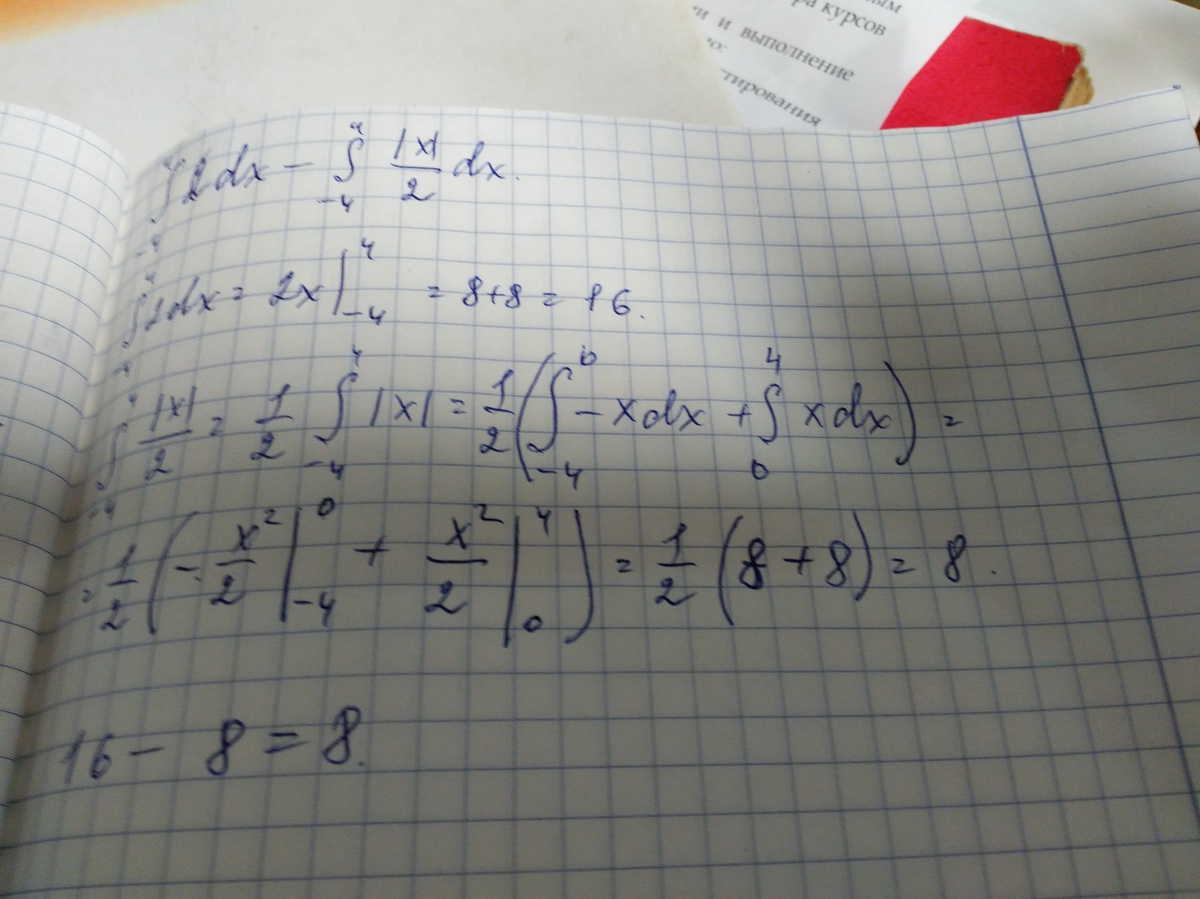 ным
ра курсов
ти и выполнение
но:
стирования
∫_{-4}^{4} 2dx − ∫_{-4}^{4} |x|/2 dx.
∫_{-4}^{4} 2dx = 2x |_{-4}^{4} = 8+8 = 16.
∫_{-4}^{4} |x|/2 = 1/2 ∫_{-4}^{4} |x| = 1/2 ( ∫_{-4}^{0} −xdx + ∫_{0}^{4} xdx ) =
= 1/2 ( − x²/2 |_{-4}^{0} + x²/2 |_{0}^{4} ) = 1/2 (8+8) = 8.
16 − 8 = 8.